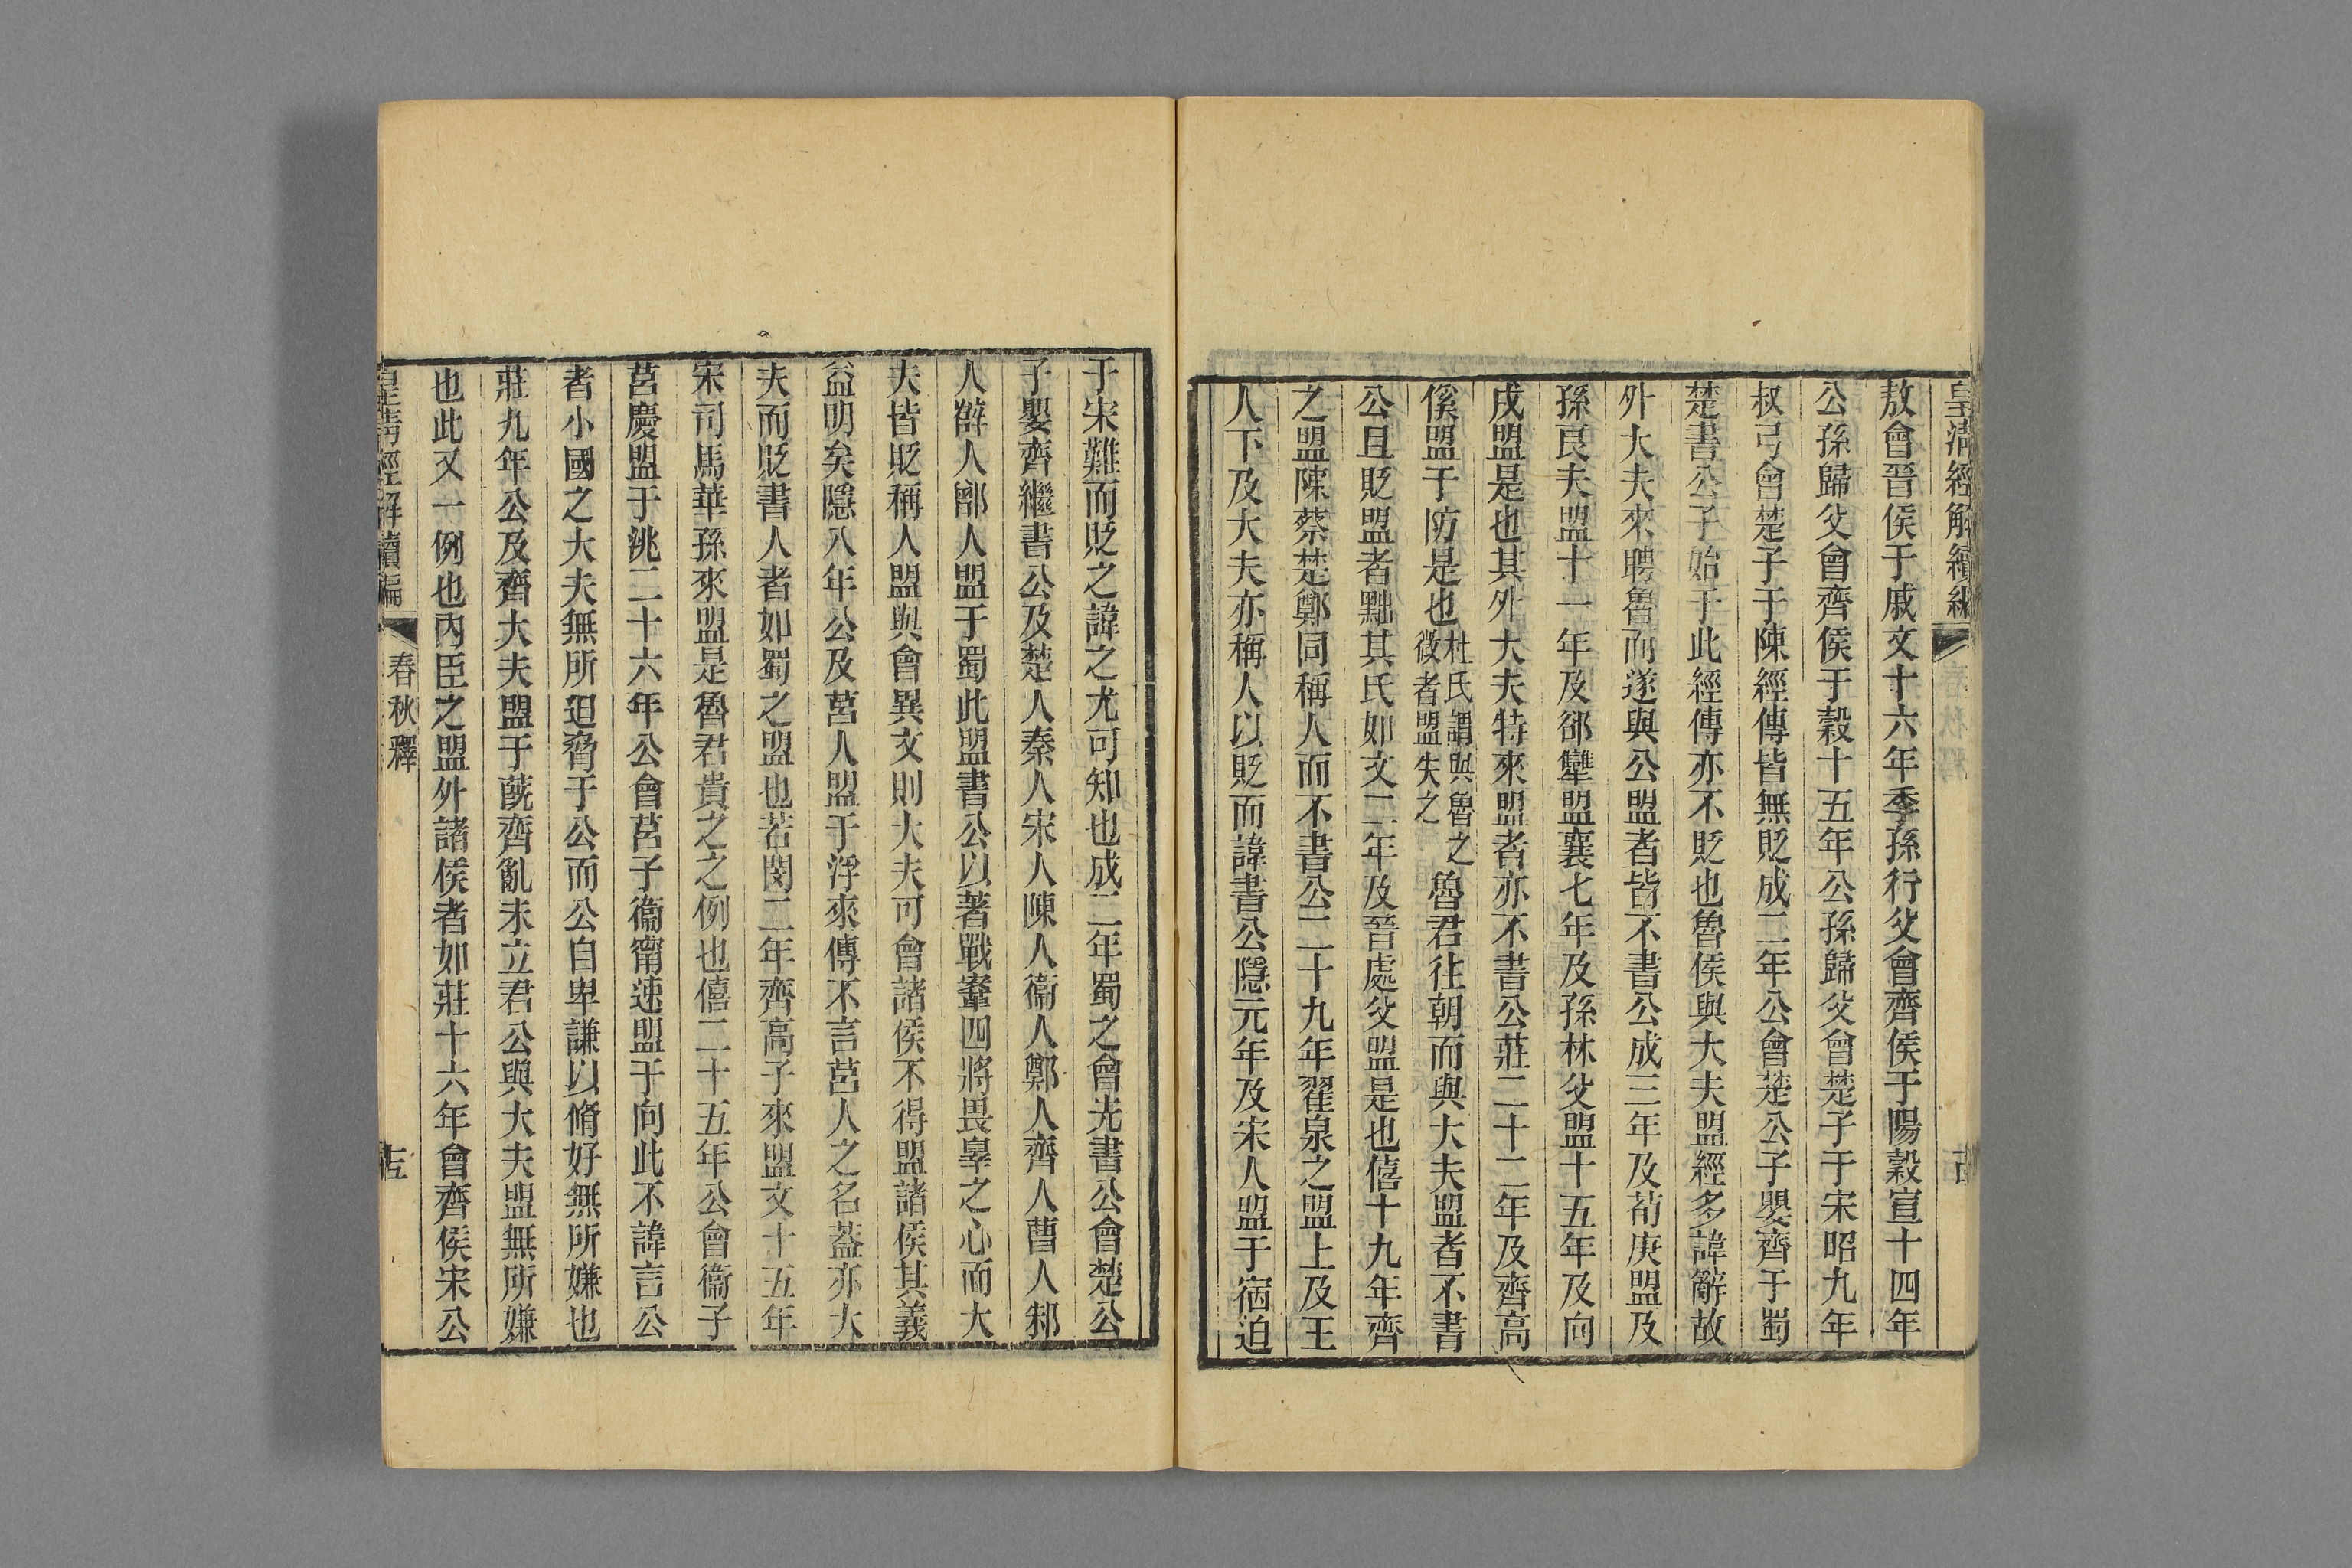 皇清經解續編
敖會晉侯于戚文十六年季孫行父會齊侯于陽穀宣十四年
公孫歸父會齊侯于穀十五年公孫歸父會楚子于宋昭九年
叔弓會楚子于陳經傳皆無貶成二年公會楚公子嬰齊于蜀
楚書公子始于此經傳亦不貶也魯侯與大夫盟經多諱辭故
外大夫來聘魯而遂與公盟者皆不書公成三年及荀庚盟及
孫良夫盟十一年及郤犫盟襄七年及孫林父盟十五年及向
戌盟是也其外大夫特來盟者亦不書公莊二十二年及齊高
傒盟于防是也杜氏謂與魯之微者盟失之魯君往朝而與大夫盟者不書
公且貶盟者黜其氏如文二年及晉處父盟是也僖十九年齊
之盟陳蔡楚鄭同稱人而不書公二十九年翟泉之盟上及王
人下及大夫亦稱人以貶而諱書公隱元年及宋人盟于宿迫
于宋難而貶之諱之尤可知也成二年蜀之會先書公會楚公
子嬰齊繼書公及楚人秦人宋人陳人衞人鄭人齊人曹人邾
人薛人鄫人盟于蜀此盟書公以著戰鞌四將畏辠之心而大
夫皆貶稱人盟與會異文則大夫可會諸侯不得盟諸侯其義
益明矣隱八年公及莒人盟于浮來傳不言莒人之名葢亦大
夫而貶書人者如蜀之盟也若閔二年齊高子來盟文十五年
宋司馬華孫來盟是魯君貴之之例也僖二十五年公會衞子
莒慶盟于洮二十六年公會莒子衞甯速盟于向此不諱言公
者小國之大夫無所迫脅于公而公自卑謙以脩好無所嫌也
莊九年公及齊大夫盟于蔇齊亂未立君公與大夫盟無所嫌
也此又一例也內臣之盟外諸侯者如莊十六年會齊侯宋公
皇清經解續編
春秋釋